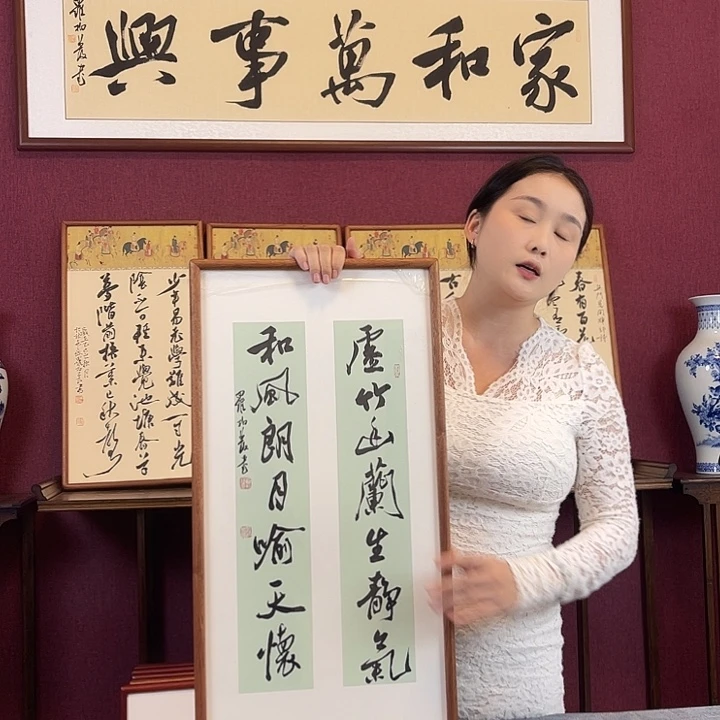 家和萬事興
虛竹幽蘭生靜氣
和風朗月喻天懷
少年易老學難成一寸光
陰不可輕未覺池塘春草
夢階前梧葉已秋聲
春有百花